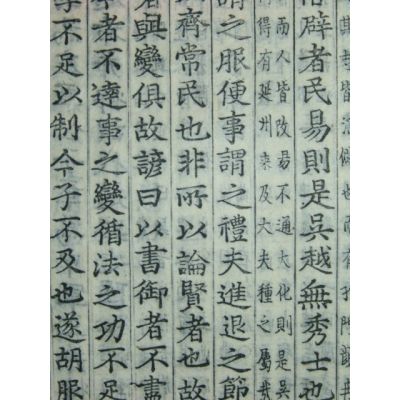 辟者民易則是吳越無秀士也
而人皆改易不通大化則是吳
得有延州來及大夫種之屬哉
謂之服便事謂之禮夫進退之節
齊常民也非所以論賢者也故
者與變俱故諺曰以書御者不盡
者不達事之變循法之功不足
不足以制今子不及也遂胡服